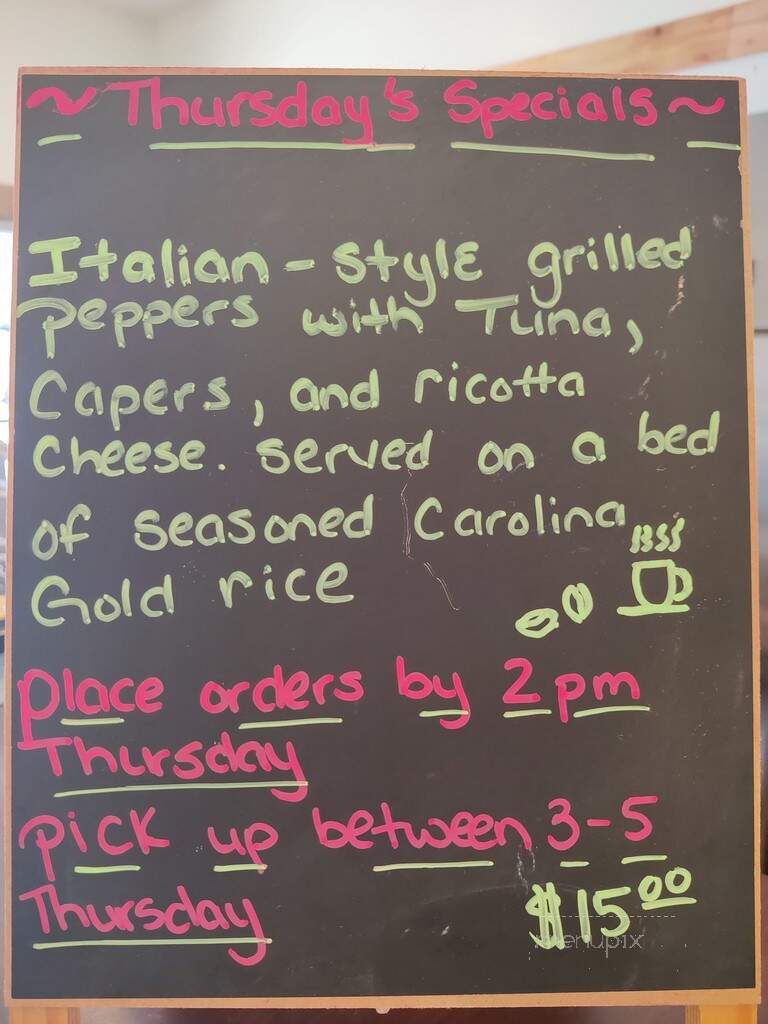 ~ Thursday's Specials ~
Italian - Style grilled
peppers with Tuna,
Capers, and ricotta
Cheese. served on a bed
of seasoned Carolina
Gold rice
place orders by 2pm
Thursday
pick up between 3-5
Thursday
$15.00
menupix